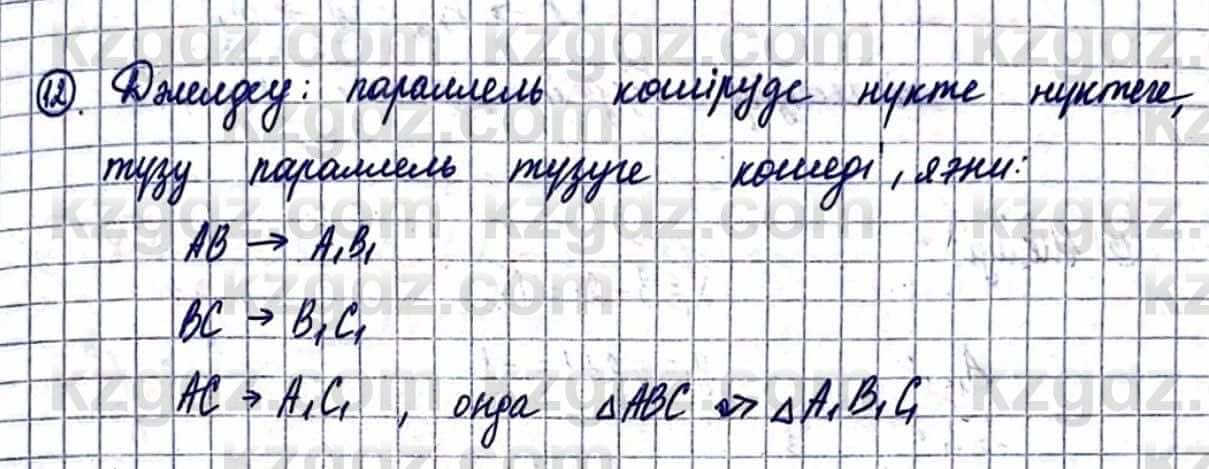 12. Дәлелдеу: параллель көшіруде нүкте нүктеге,
түзу параллель түзуге көшеді, яғни:
AB → A₁B₁
BC → B₁C₁
AC → A₁C₁, онда △ABC → △A₁B₁C₁